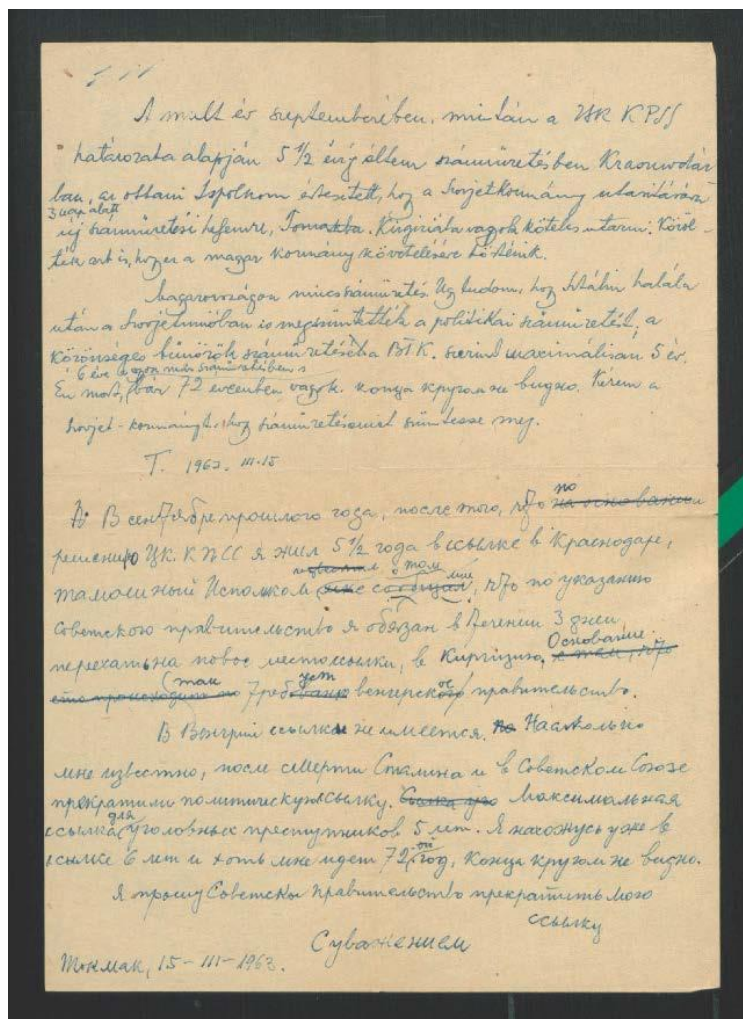 A mult év szeptemberében, miután a ЦК KPSS
határozata alapján 5 1/2 évig éltem száműzetésben Krasznodár
ban, az ottani Iszpolkom értesített, hogy a Szovjetkormány utasítására
3 nap alatt
új száműzetési helyemre, Kirgiziába vagyok köteles utazni. Közöl-
ték azt is, hogy ez a magyar kormány követelésére történik.
Magyarországon nincs száműzetés. Úgy tudom, hogy Sztálin halála
után a Szovjetunióban is megszüntették a politikai száműzetést, a
közönséges bűnözők száműzetése a BTK. szerint maximálisan 5 év.
6 éve vagyok már száműzetésben s
Én most, bár 72 évemben vagyok. конца кругом не видно. Kérem a
Szovjet-kormányt, hogy száműzetésemet szüntesse meg.
T. 1963. III. 15
В сентябре прошлого года, после того, что на основании
по
решению ЦК. КПСС я жил 5 1/2 года в ссылке в Краснодаре,
о том
тамошный Исполком мне сообщал, что по указанию
мне
Советского правительство я обязан в течении 3 дней
переехать на новое место ссылки, в Киргизию, с тем, что
Основание:
это происходит по требованию венгерского правительство.
так
В Венгрий ссылки не имеется. Насколько
мне известно, после смерти Сталина и в Советском Союзе
прекратили политическую ссылку. Максимальная
ссылка для уголовных преступников 5 лет. Я нахожусь уже в
ссылке 6 лет и хоть мне идет 72-ой год, конца кругом не видно.
Я прошу Советски правительство прекратить мою
ссылку
С уважением
Токмак, 15-III-1963.